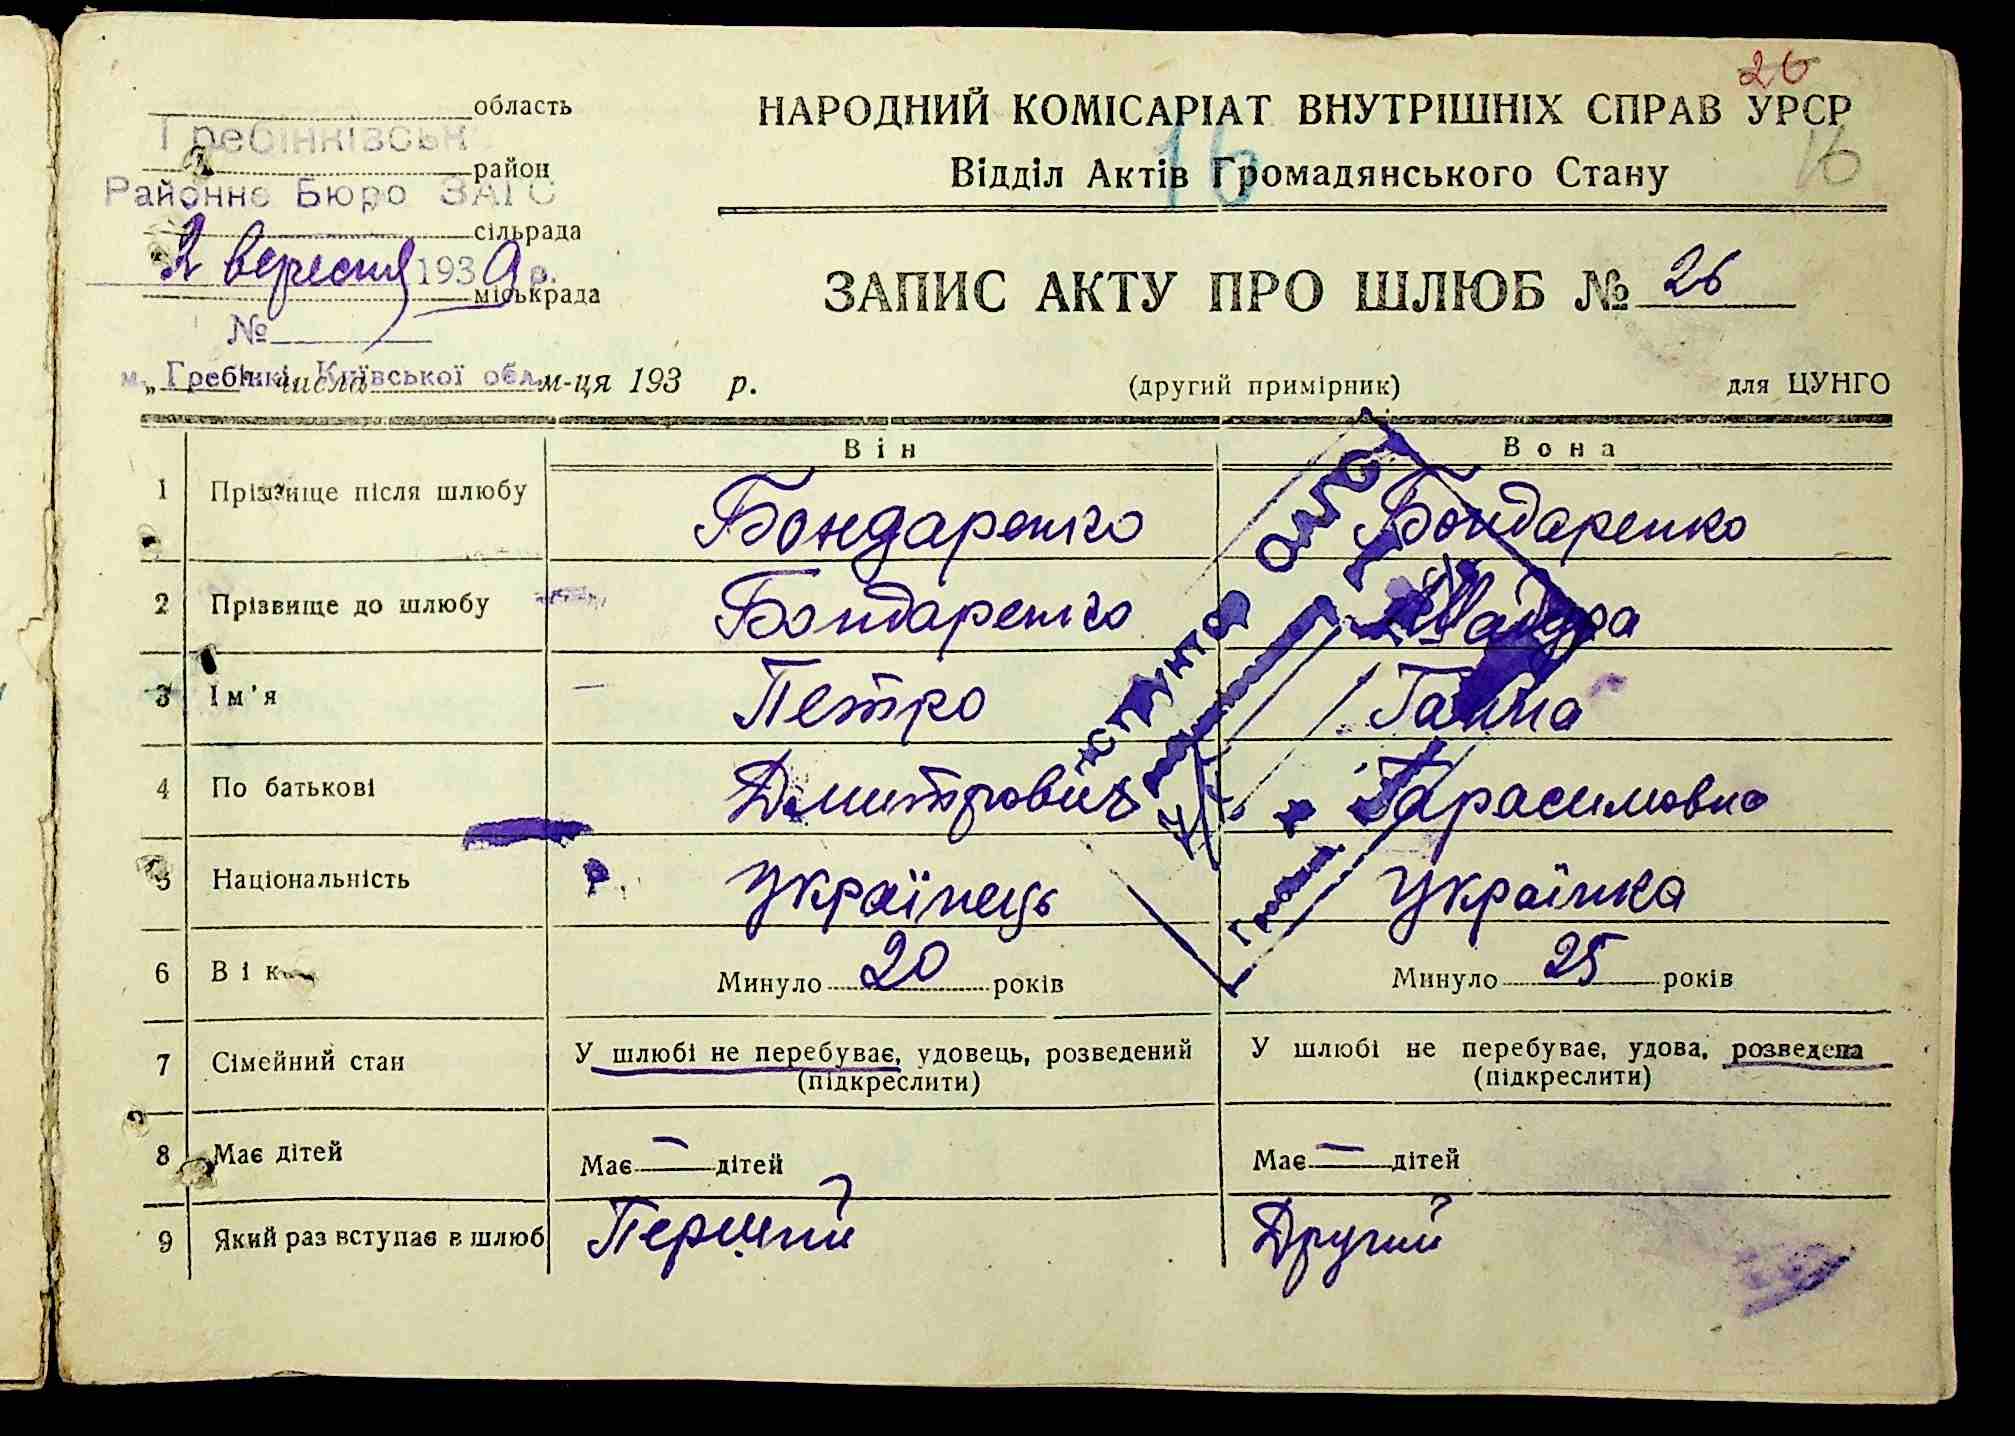 26
область
НАРОДНИЙ КОМІСАРІАТ ВНУТРІШНІХ СПРАВ УРСР
Гребінківськ
район
16
Відділ Актів Громадянського Стану
16
Районне Бюро ЗАГС
сільрада
2 вересня 1939 р.
міськрада
ЗАПИС АКТУ ПРО ШЛЮБ № 26
№
м. Гребінкі, Київської обл.
„ числа м-ця 193 р.
(другий примірник)
для ЦУНГО
Він
Вона
1 Прізвище після шлюбу Бондаренко Бондаренко
2 Прізвище до шлюбу Бондаренко
3 Ім'я Петро Ганна
4 По батькові Дмитрович Тарасимовна
5 Національність Українець Українка
6 Вік Минуло 20 років Минуло 25 років
7 Сімейний стан У шлюбі не перебуває, удовець, розведений У шлюбі не перебуває, удова, розведена
(підкреслити) (підкреслити)
8 Має дітей Має — дітей Має — дітей
9 Який раз вступає в шлюб Перший Другий